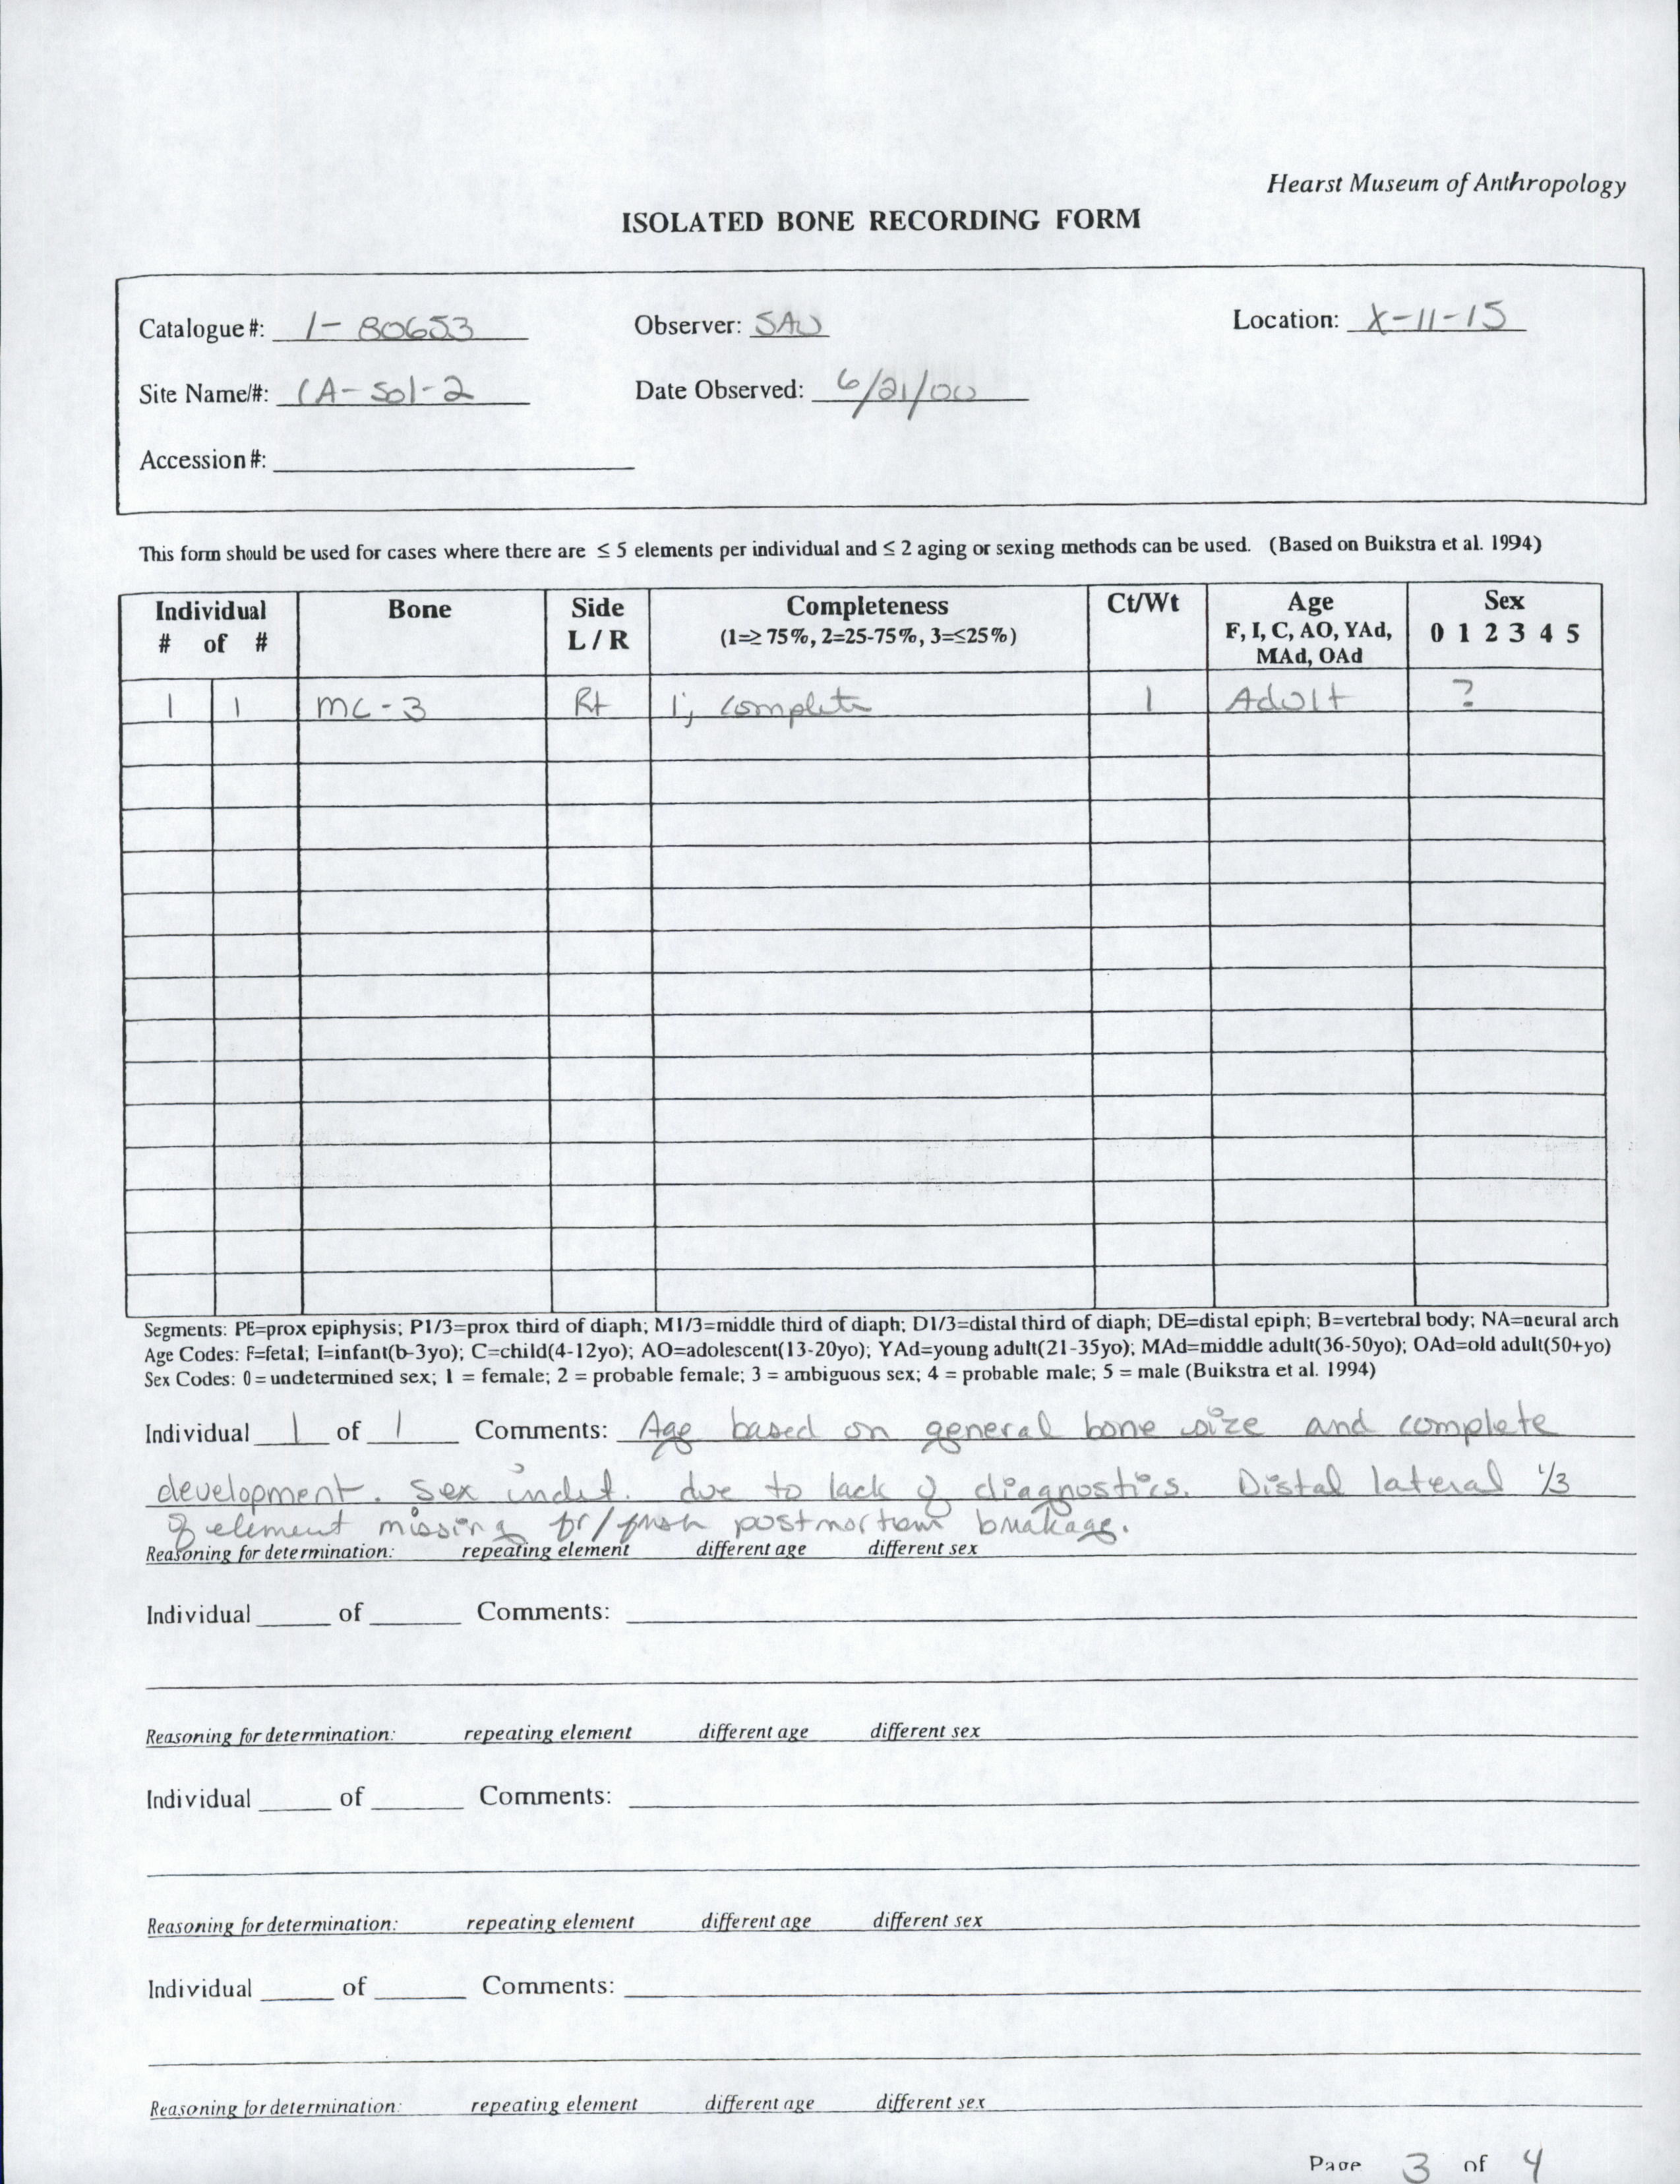 Hearst Museum of Anthropology
ISOLATED BONE RECORDING FORM
Catalogue #: 1-80653 Observer: SAW Location: X-11-15
Site Name/#: CA-Sol-2 Date Observed: 6/21/00
Accession #:
This form should be used for cases where there are ≤ 5 elements per individual and ≤ 2 aging or sexing methods can be used. (Based on Buikstra et al. 1994)
Individual Bone Side Completeness Ct/Wt Age Sex
# of # L / R (1=≥ 75%, 2=25-75%, 3=≤25%) F, I, C, AO, YAd, 0 1 2 3 4 5
MAd, OAd
1 1 mc-3 Rt 1; complete 1 Adult ?
Segments: PE=prox epiphysis; P1/3=prox third of diaph; M1/3=middle third of diaph; D1/3=distal third of diaph; DE=distal epiph; B=vertebral body; NA=neural arch
Age Codes: F=fetal; I=infant(b-3yo); C=child(4-12yo); AO=adolescent(13-20yo); YAd=young adult(21-35yo); MAd=middle adult(36-50yo); OAd=old adult(50+yo)
Sex Codes: 0 = undetermined sex; 1 = female; 2 = probable female; 3 = ambiguous sex; 4 = probable male; 5 = male (Buikstra et al. 1994)
Individual 1 of 1 Comments: Age based on general bone size and complete
development. Sex indet. due to lack of diagnostics. Distal lateral 1/3
of element missing fr/fresh postmortem breakage.
Reasoning for determination: repeating element different age different sex
Individual of Comments:
Reasoning for determination: repeating element different age different sex
Individual of Comments:
Reasoning for determination: repeating element different age different sex
Individual of Comments:
Reasoning for determination: repeating element different age different sex
Page 3 of 4